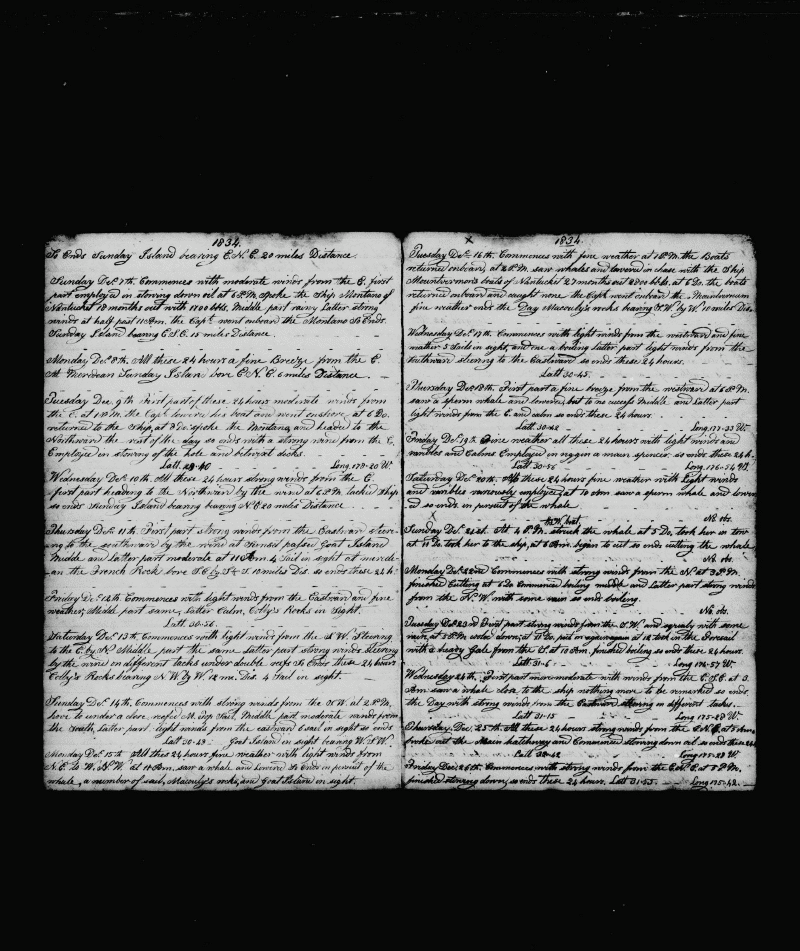 1834.
So Ends Sunday Island bearing E.N.E. 20 miles Distance.
Sunday Dec. 7th. Commences with moderate winds from the E. first
part employed in stowing down oil at 6 P.M. Spoke the Ship Montano of
Nantucket 18 months out with 1700 bbls. Middle part rainy Latter strong
winds at half past 11 Am. the Capt. went onboard the Montano So Ends.
Sunday Island bearing E.S.E. 15 miles Distance.
Monday Dec. 8th. All these 24 hours a fine Breeze from the E.
At Meridean Sunday Islan bore E.N.E. 6 miles Distance
Tuesday Dec. 9th First part of these 24 hours moderate winds from
the E. at 1 P.M. the Capt. lowered his boat and went onshore at 6 Do.
returned to the Ship, at 8 Do. spoke the Montano, and headed to the
Northward the rest of the day so ends with a strong wind from the E.
Employed in stowing of the hole and between decks.
Latt. 29-40 Long. 178-20 W.
Wednesday Dec. 10th. All these 24 hours strong winds from the E.
first part heading to the Northward by the wind at 6 P.M. tacked Ship
so ends Sunday Island bearing bearing N.E. 20 miles Distance
Thursday Dec. 11th. First part strong winds from the Eastward steer-
ing to the southward by the wind at sunset passed Goat Island
Middle and Latter part moderate at 11 Am. 4 Sail in sight at merede-
an the French Rock bore S.E. by S. & S. 10 miles Dis. so ends these 24 h.
Friday Dec. 12th. Commences with light winds from the Eastward and fine
weather, Middl part same, Latter Calm, Colly's Rocks in Sight.
Latt. 30-56.
Saturday Dec. 13th. Commences with light winds from the S.W. Steering
to the E. by N. Middle part the same Latter part strong winds Steering
by the wind on different tacks under double reefs So Ends these 24 hours
Colly's Rocks bearing N.W. by W. 12 ms. Dis. 4 Sail in sight.
Sunday Dec. 14th. Commences with strong winds from the N.W. at 2 P.M.
hove to under a close reefed M. top Sail, Middle part moderate winds from
the South, Latter part light winds from the eastward 6 sail in sight so ends
Latt 30-49. Goat Island in sight bearing W.S.W.
Monday Dec. 15th All thes 24 hour fine weather with light winds from
N.E. to W.N.W. at 11 Am. saw a whale and lowered So Ends in pursuit of the
whale, a number of sail, Macauly's rocks, and Goat Island in sight.
1834
Tuesday Dec. 16th. Commences with fine weather at 1 P.M. the Boats
returned onboard, at 2 P.M. saw whales and lowered in chase with the Ship
Mountvernon's boats of Nantucket 27 months out 2200 bbls. at 6 Do. the boats
returned onboard and caught none the Capt. went onboard the Mountvernon
fine weather ends the Day Macauly's rocks bearing S.W. by W. 10 miles Dis.
Wednesday Dec. 17th Commences with light winds from the westward and fine
wather 5 Sail in sight, and one a boiling Latter part light winds from the
Southward steering to the Eastward so ends these 24 hours.
Latt 30-45.
Thursday Dec. 18th. First part a fine breeze from the westward at 6 P.M.
saw a sperm whale and lowered, but to no success Middle and Latter part
light winds from the E. and calm so ends these 24 hours.
Latt. 30-42 Long. 177-33 W.
Friday Dec. 19th. Fine weather all these 24 hours with light winds and
varibles and Calms Employed in rigging a main spencer, so ends these 24 h.
Latt 30-56 Long. 176-54 W.
Saturday Dec. 20th. All these 24 hours fine weather with Light winds
and varibles variously employed, at 10 Am. saw a sperm whale and lower-
d so ends in pursuit of the whale
No. obs.
Sunday Dec. 21st. At 4 P.M. struck the whale at 5 Do. took her in tow
at 11 Do. took her to the ship, at 5 Am. began to cut so ends cutting the whale
No. obs.
Monday Dec. 22nd Commences with strong winds from the N. at 3 P.M.
finished Cutting at 6 Do Commenced boiling middle and Latter part strong winds
from the N.W. with some rain so ends boiling.
No. obs.
Tuesday Dec. 23rd First part strong winds from the S.W. and squaly with some
rain, at 5 P.M. cooled down, at 11 Do. put on again at 12 took in the Foresail
with a heavy Gale from the S. at 10 Am. finished boiling, so ends these 24 hours
Latt 31-6 Long 176-57 W.
Wednesday 24th. First part more moderate with winds from the E.S.E. at 3
Am. saw a whale close to the ship nothing more to be remarked so ends
the Day with strong winds from the Eastward Steering on different tacks.
Latt 31-15 Long 175-28 W.
Thursday, Dec. 25th All these 24 hours strong winds from the E.N.E. at 5 Am
broke out the Main hatchway and Commenced stowing down oil so ends these 24
Latt 30-42 Long 175-28 W.
Friday Dec. 26th. Commences with strong winds from the E.N.E. at 7 P.M.
finished stowing down, so ends these 24 hours. Latt 31-53 Long 175-42.